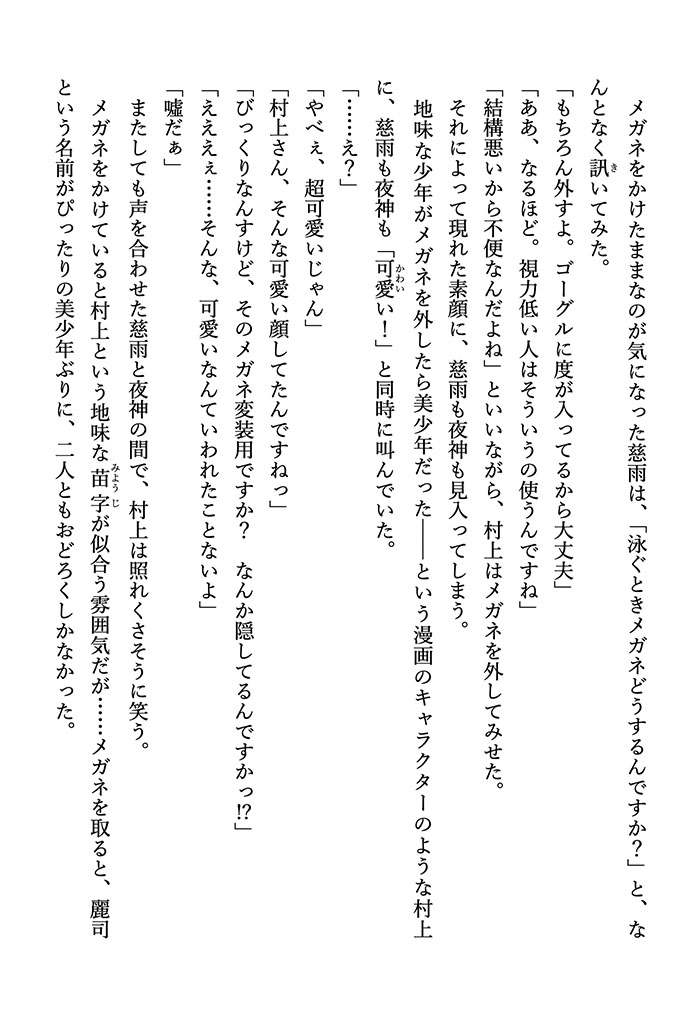 メガネをかけたままなのが気になった慈雨は、「泳ぐときメガネどうするんですか？」と、な
んとなく訊いてみた。
「もちろん外すよ。ゴーグルに度が入ってるから大丈夫」
「ああ、なるほど。視力低い人はそういうの使うんですね」
「結構悪いから不便なんだよね」といいながら、村上はメガネを外してみせた。
それによって現れた素顔に、慈雨も夜神も見入ってしまう。
地味な少年がメガネを外したら美少年だった――という漫画のキャラクターのような村上
に、慈雨も夜神も「可愛い！」と同時に叫んでいた。
「……え？」
「やべぇ、超可愛いじゃん」
「村上さん、そんな可愛い顔してたんですねっ」
「びっくりなんすけど、そのメガネ変装用ですか？　なんか隠してるんですかっ!?」
「えええぇ……そんな、可愛いなんていわれたことないよ」
「嘘だぁ」
またしても声を合わせた慈雨と夜神の間で、村上は照れくさそうに笑う。
メガネをかけていると村上という地味な苗字が似合う雰囲気だが……メガネを取ると、麗司
という名前がぴったりの美少年ぶりに、二人ともおどろくしかなかった。